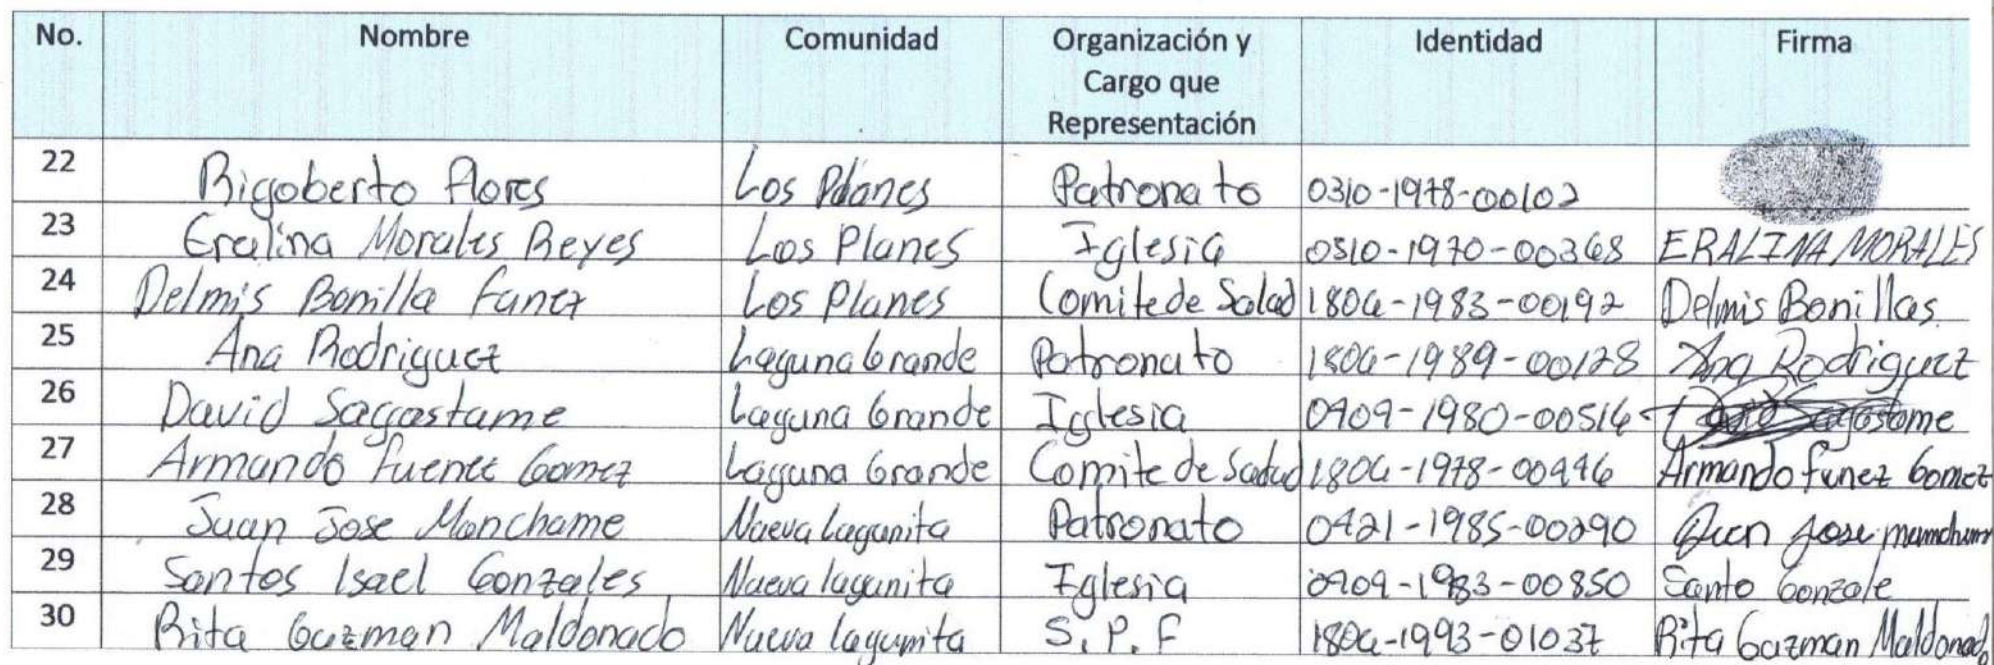 No. Nombre Comunidad Organización y Cargo que Representación Identidad Firma
22 Rigoberto Flores Los Planes Patronato 0310-1978-00102
23 Eralina Morales Reyes Los Planes Iglesia 0310-1970-00368 ERALINA MORALES
24 Delmis Bonilla Funez Los Planes Comite de Salud 1804-1983-00192 Delmis Bonillas
25 Ana Rodriguez Laguna Grande Patronato 1804-1989-00128 Ana Rodriguez
26 David Sagastame Laguna Grande Iglesia 0909-1980-00516 Sagastome
27 Armando Funez Gomez Laguna Grande Comite de Salud 1804-1978-00446 Armando funez Gomez
28 Juan Jose Manchame Nueva Lagunita Patronato 0421-1985-00290 Juan Jose
29 Santos Isael Gonzales Nueva lagunita Iglesia 0909-1983-00850 Santo Gonzale
30 Rita Guzman Maldonado Nueva Lagunita S.P.F 1804-1993-01037 Rita Guzman Maldonado